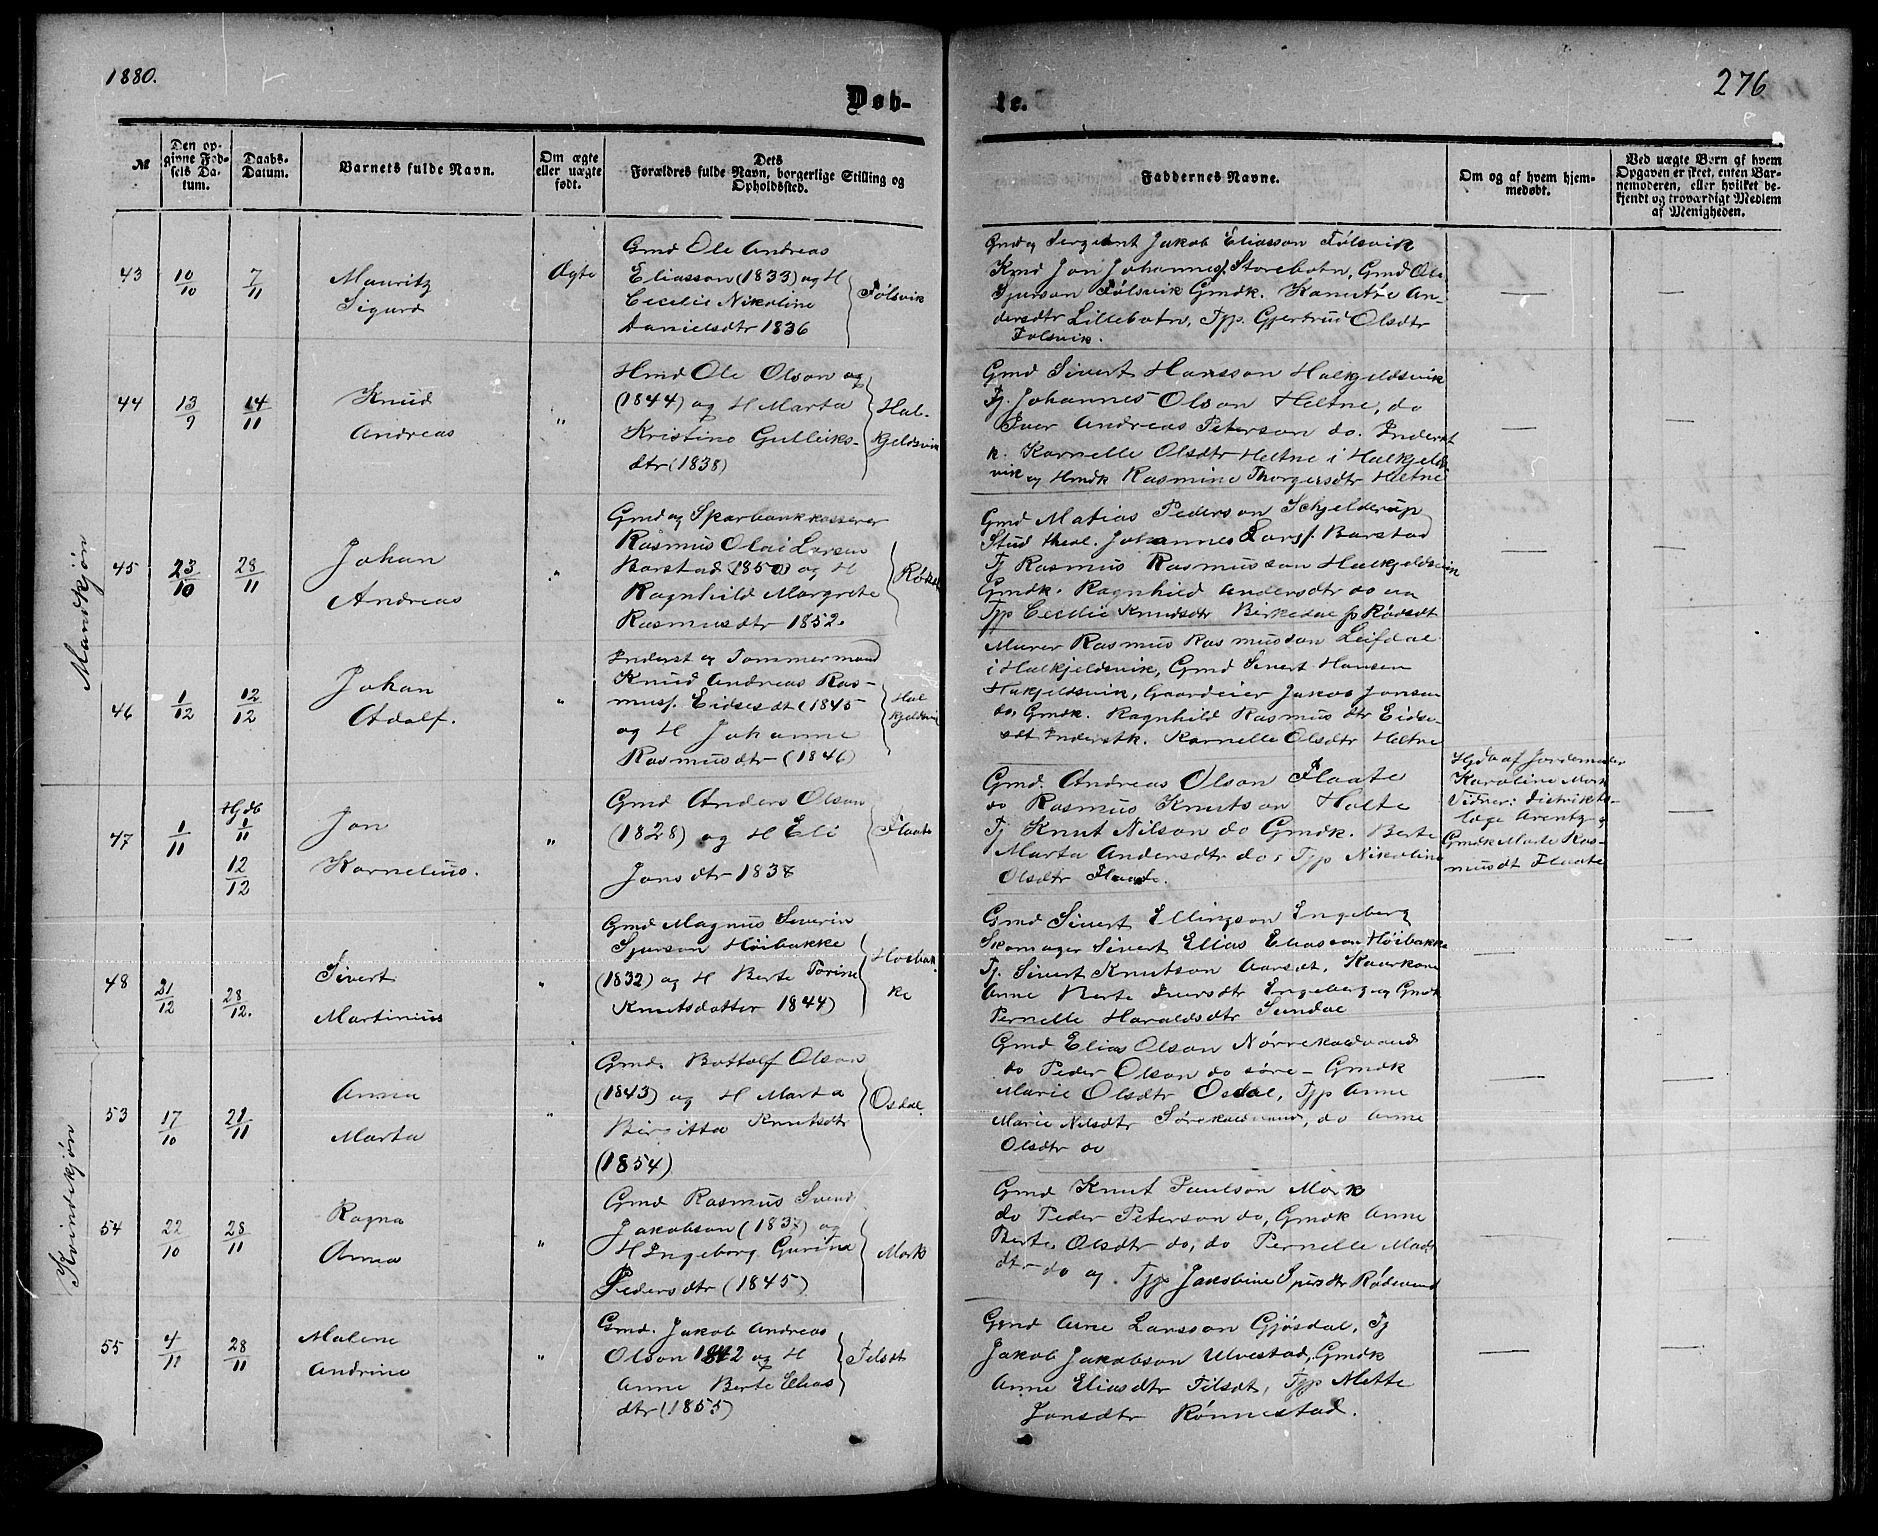 1880.
276
Døb-
te.
№
Den op-
givne Fød-
sels Da-
tum.
Daabs-
Datum.
Barnets fulde Navn.
Om ægte
eller uægte
født.
Dets
Forældres fulde Navn, borgerlige Stilling og
Opholdssted.
Faddernes Navne.
Om og af hvem hjem-
medøbt.
Ved uægte Børn af hvem
Opgaven er skeet, enten Bar-
nemoderen, eller hvilket be-
kjendt og troværdigt Medlem
af Menigheden.
Mandkjøn
43
10/10
7/11
Mauritz
Sigurd
Ægte
Gmd Ole Andreas
Eliasson (1833) og H
Cecilie Nikoline
Danielsdtr 1836
Følsvik
Gmd og Sergeant Jakob Eliasson Følsvik
Jon Johannesf. Storebotn, Gmd Ole
Sjurson Følsvik Gmdk. Kanutte An-
dersdtr Lillebotn, Tjp. Gjertrud Olsdtr
Følsvik.
44
13/9
14/11
Knud
Andreas
"
Hmd Ole Olson og
(1844) og H Marta
Kristine Gulleiks-
dtr (1838)
Hal-
kjeldsvik
Gmd Sivert Hansson Halkjeldsvik
Tj. Johannes Olson Heltne, do
Iver Andreas Peterson do. Inderst
k. Karnelle Olsdtr Heltne i Halkjelds
vik og Hmdk Rasmine Thorgersdtr Heltne
45
23/10
28/11
Johan
Andreas
"
Gmd og Sparbankkasserer
Rasmus Olai Larsen
Barstad (1850) og H
Ragnhild Margrete
Rasmusdtr 1852.
Gmd Matias Pederson Schjelderup
Stud theol. Johannes Larsf. Barstad
Tj Rasmus Rasmusson Halkjeldsvik
Gmdk. Ragnhild Andersdtr do
Tjp Cecilie Knudsdtr Birkedal Rødsdt
46
1/12
12/12
Johan
Adolf.
"
Inderst og Tømmermand
Knud Andreas Ras-
musf. Eidsesdt (1845
og H Johanne
Rasmusdtr (1846)
Hal
kjeldsvi
Murer Rasmus Rasmusson Leifdal
i Halkjeldsvik, Gmd Sivert Hansen
Halkjeldsvik, Gaardeier Jakob Jonsen
do, Gmdk. Ragnhild Rasmusdtr Eidse-
sdt Inderstk. Karnelle Olsdtr Heltne
47
1/11
Hjdb
1/11
12/12
Jon
Kornelius.
"
Gmd Anders Olson
(1828) og H Eli
Jonsdtr 1838
Flaate
Gmd. Andreas Olson Flaate
do Rasmus Knutson Holte
Tj Knut Nilson do Gmdk. Berte
Marta Andersdtr do, Tjp Nikoline
Olsdtr Flaate.
Hjdb af Jordemoder
Karoline Mork
Vidner: Distrikts-
læge Arentz og
Gmdk Made Ras-
musdt Flaate
48
21/12
28/12.
Sivert
Martinius
"
Gmd Magnus Severin
Sjurson Høibakke
(1832) og H Berte Torine
Knutsdatter 1844)
Hoibak
ke
Gmd Sivert Ellingson Engeberg
Skomager Sivert Elias Eliasson Høibakke
Tj. Sivert Knutson Aarsdt. Kaarkone
Anne Berte Iversdtr Engeberg og Gmdk
Pernelle Haraldsdtr Sundal
Kvindekjøn
53
17/10
21/11
Anna
Marta
"
Gmd. Bottolf Olson
(1843) og H Marta
Birgitta Knutsdtr
(1854)
Osdal
Gmd Elias Olson Nørrekaldvand
do Peder Olson do søre - Gmdk
Marie Olsdtr Osdal, Tjp Anne
Marie Nilsdtr Sørekaldvand, do Anne
Olsdtr do
54
22/10
28/11
Ragna
Anna
"
Gmd Rasmus Svend
Jakobson (1837) og
H Ingeborg Gurina
Pedersdtr (1845)
Mork
Gmd Knut Paulson Mork
do Peder Peterson do, Gmdk Anne
Berte Olsdtr do, do Pernelle Mads
dtr do og Tjp Jakobine Sjursdtr Rødsvend
55
4/11
28/11
Malene
Andrine
"
Gmd. Jakob Andreas
Olson 1842 og H
Anne Berte Elias
dtr (1855)
Filsdt
Gmd Arne Larsson Gjøsdal, Tj
Jakob Jakobson Ulvestad, Gmdk
Anne Eliasdtr Filsdt, Tjp Mette
Jonsdtr Rønnestad.